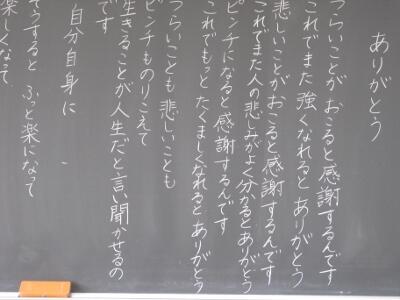 ありがとう
つらいことが おこると感謝するんです
これでまた 強くなれると ありがとう
悲しいことがおこると感謝するんです
これでまた人の悲しみがよく分かるとありがとう
ピンチになると感謝するんです
これでもっと たくましくなれると ありがとう
つらいことも 悲しいことも
ピンチものりこえて
生きることが 人生だと言い聞かせるの
です
自分自身に
そうすると ふっと楽になって
楽しくなって